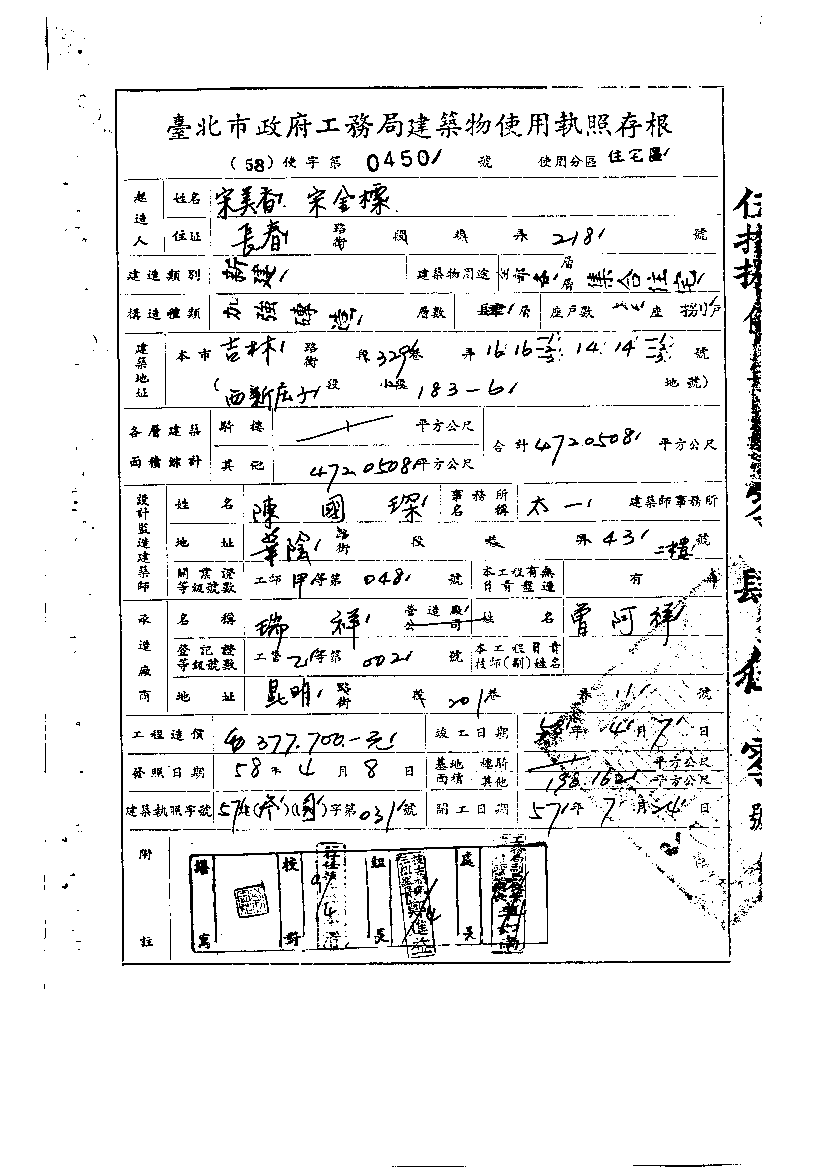 臺北市政府工務局建築物使用執照存根
(58)使字第 0450 號 使用分區 住宅區
起造人 姓名 宋美香 宋金標
住址 長春 路街 段 巷 弄 218 號
建造類別 新建 建築物用途 全部 層 層 集合住宅
構造種類 加強磚造 層數 肆層 座戶數 座 捌戶
建築地址 本市 吉林 路街 段 329巷 弄 16 16 14 14 號
(西新庄子 段 小段 183-6 地號)
各層建築面積總計 騎樓 平方公尺 合計 472.0508 平方公尺
其他 472.0508 平方公尺
設計監造建築師 姓名 陳國琛 事務所名稱 太一 建築師事務所
地址 華陰 路街 段 巷 弄 43 號 二樓
開業證等級號數 工師甲等第 048 號 本工程有無負責監造 有
承造廠商 名稱 瑞祥 營造廠公司 姓名 曾阿祥
登記證等級號數 工營乙等第 002 號 本工程負責技師(副)姓名
地址 昆明 路街 段 201巷 弄 11 號
工程造價 377.700.-元 竣工日期 58年4月7日
發照日期 58年4月8日 基地面積 騎樓 平方公尺
其他 198.162 平方公尺
建築執照字號 57建( )( )字第031號 開工日期 57年7月24日
附註
繕寫 校對 組長 處長
零號